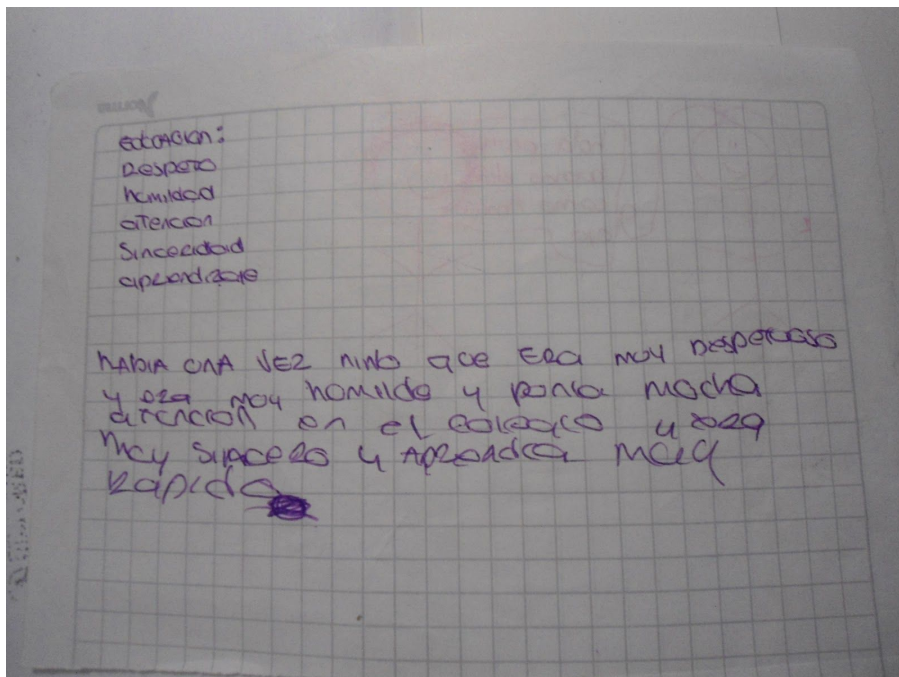 educacion:
Respeto
humildad
atencion
Sinceridad
aprendizaje
habia una vez niño que era muy respetuoso
y era muy humilde y ponia mucha
atencion en el colegio y era
muy sincero y aprendia muy
Rapido